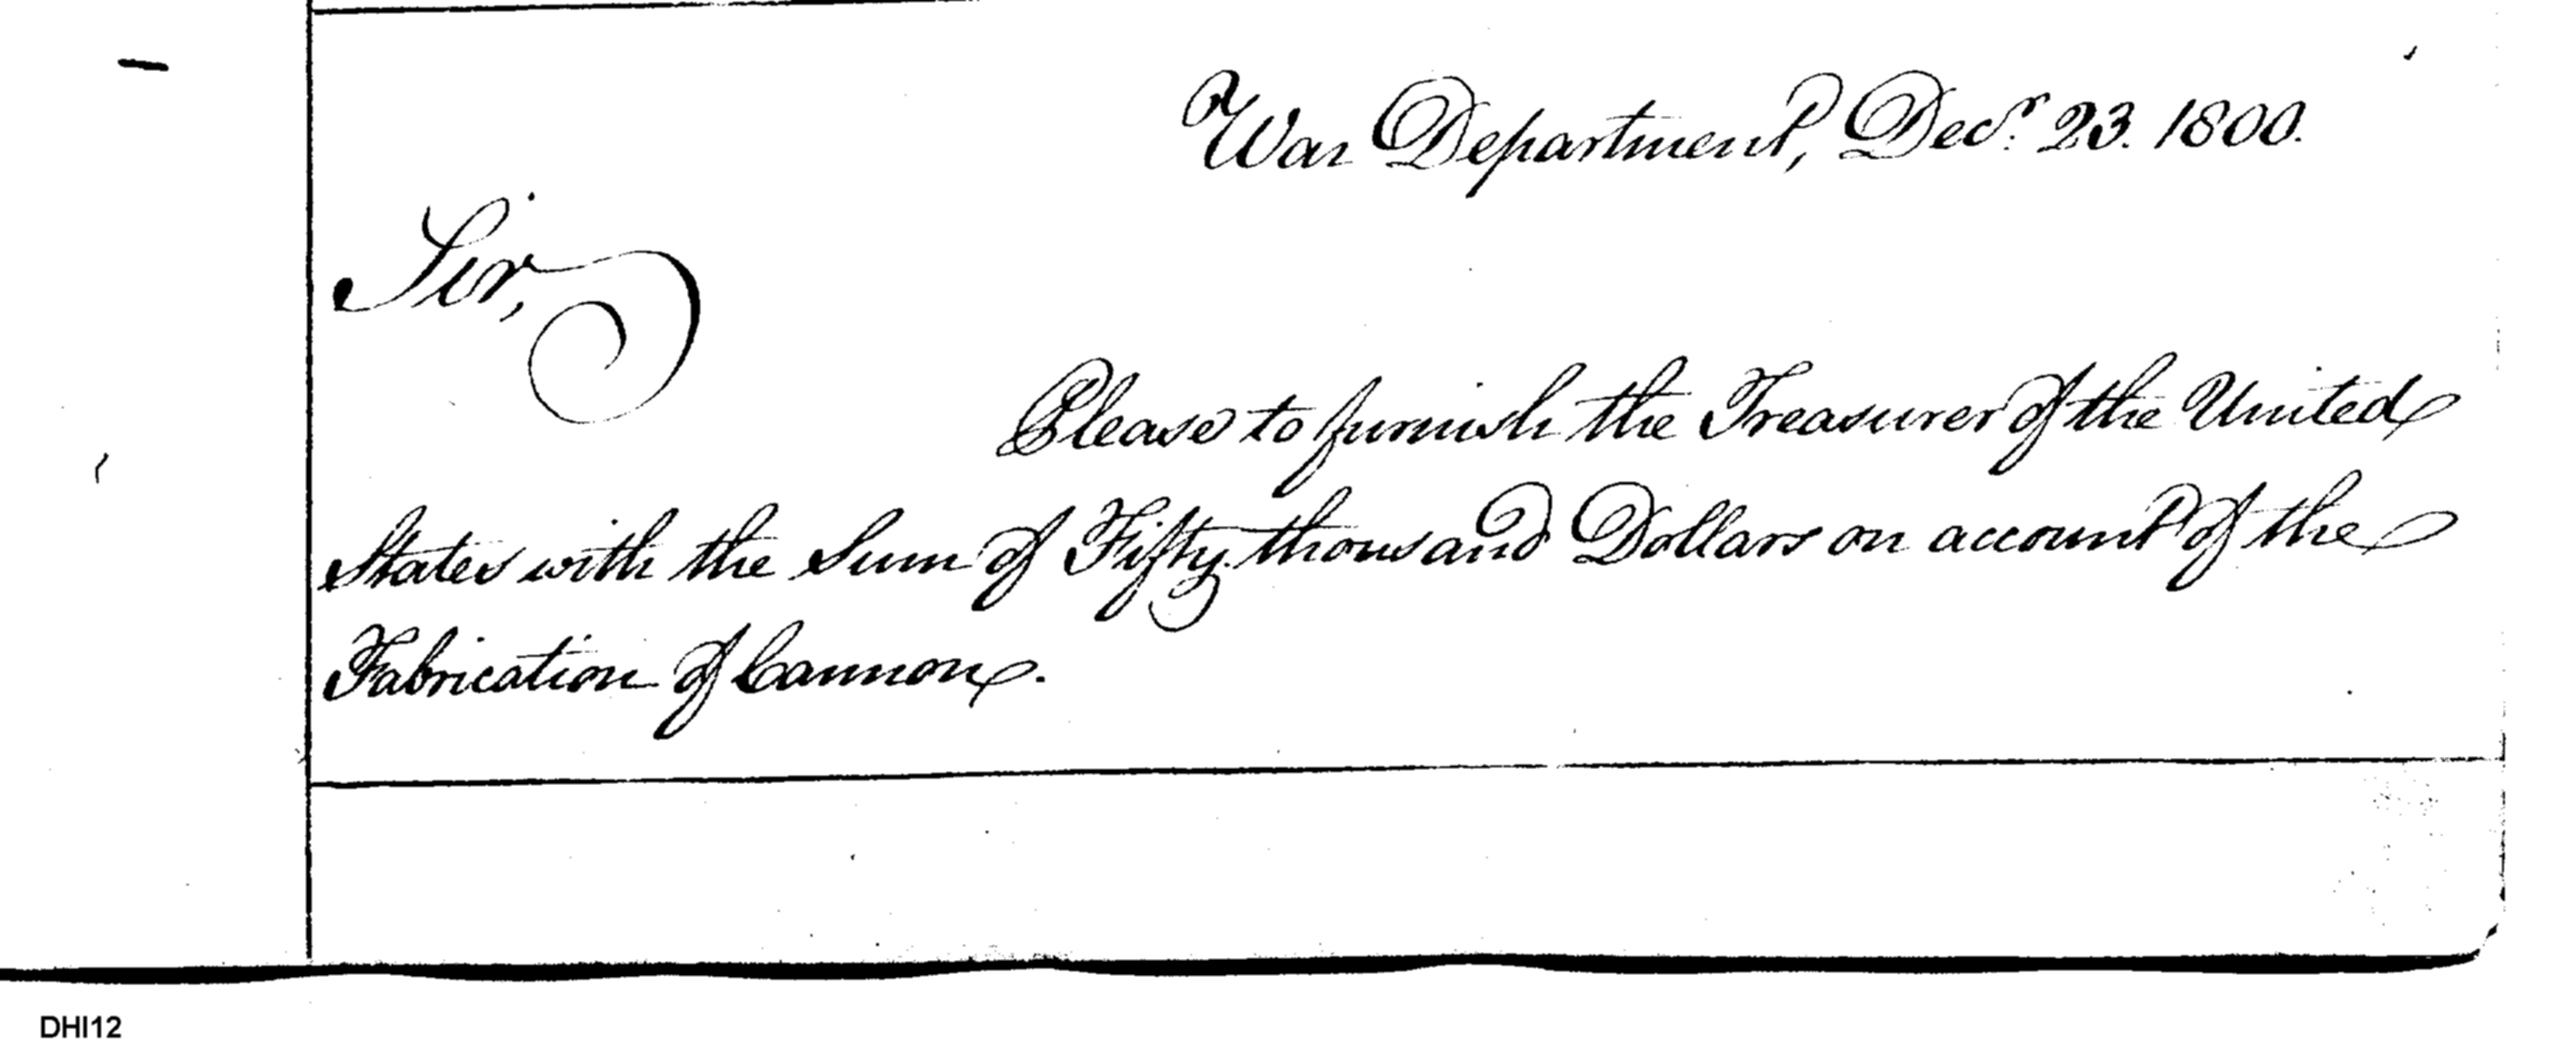 War Department, Decr. 23. 1800.
Sir,
Please to furnish the Treasurer of the United
States with the Sum of Fifty thousand Dollars on account of the
Fabrication of Cannon.
DHI12